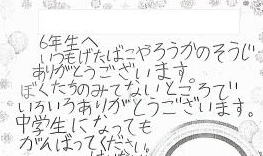 6年生へ
いつもげたばこやろうかのそうじ
ありがとうございます。
ぼくたちのみてないところで
いろいろありがとうございます。
中学生になっても
がんばってください。